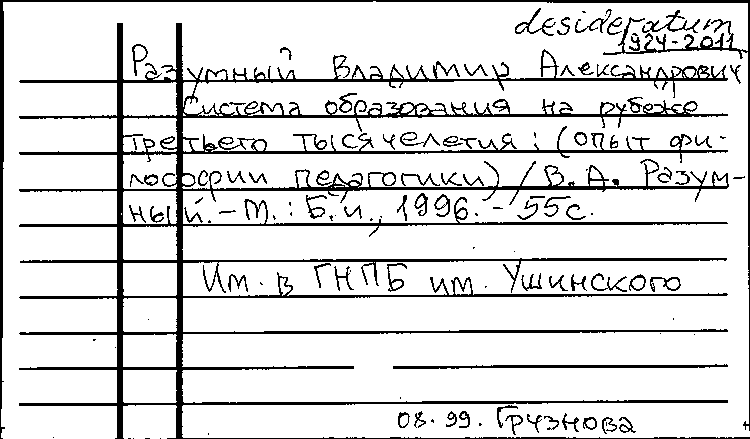 desideratum
1924-2011
Разумный Владимир Александрович
Система образования на рубеже
третьего тысячелетия: (опыт фи-
лософии педагогики) / В. А. Разум-
ный. - М.: Б. и., 1996. - 55 с.
Им. в ГНПБ им. Ушинского
08. 99. Грузнова